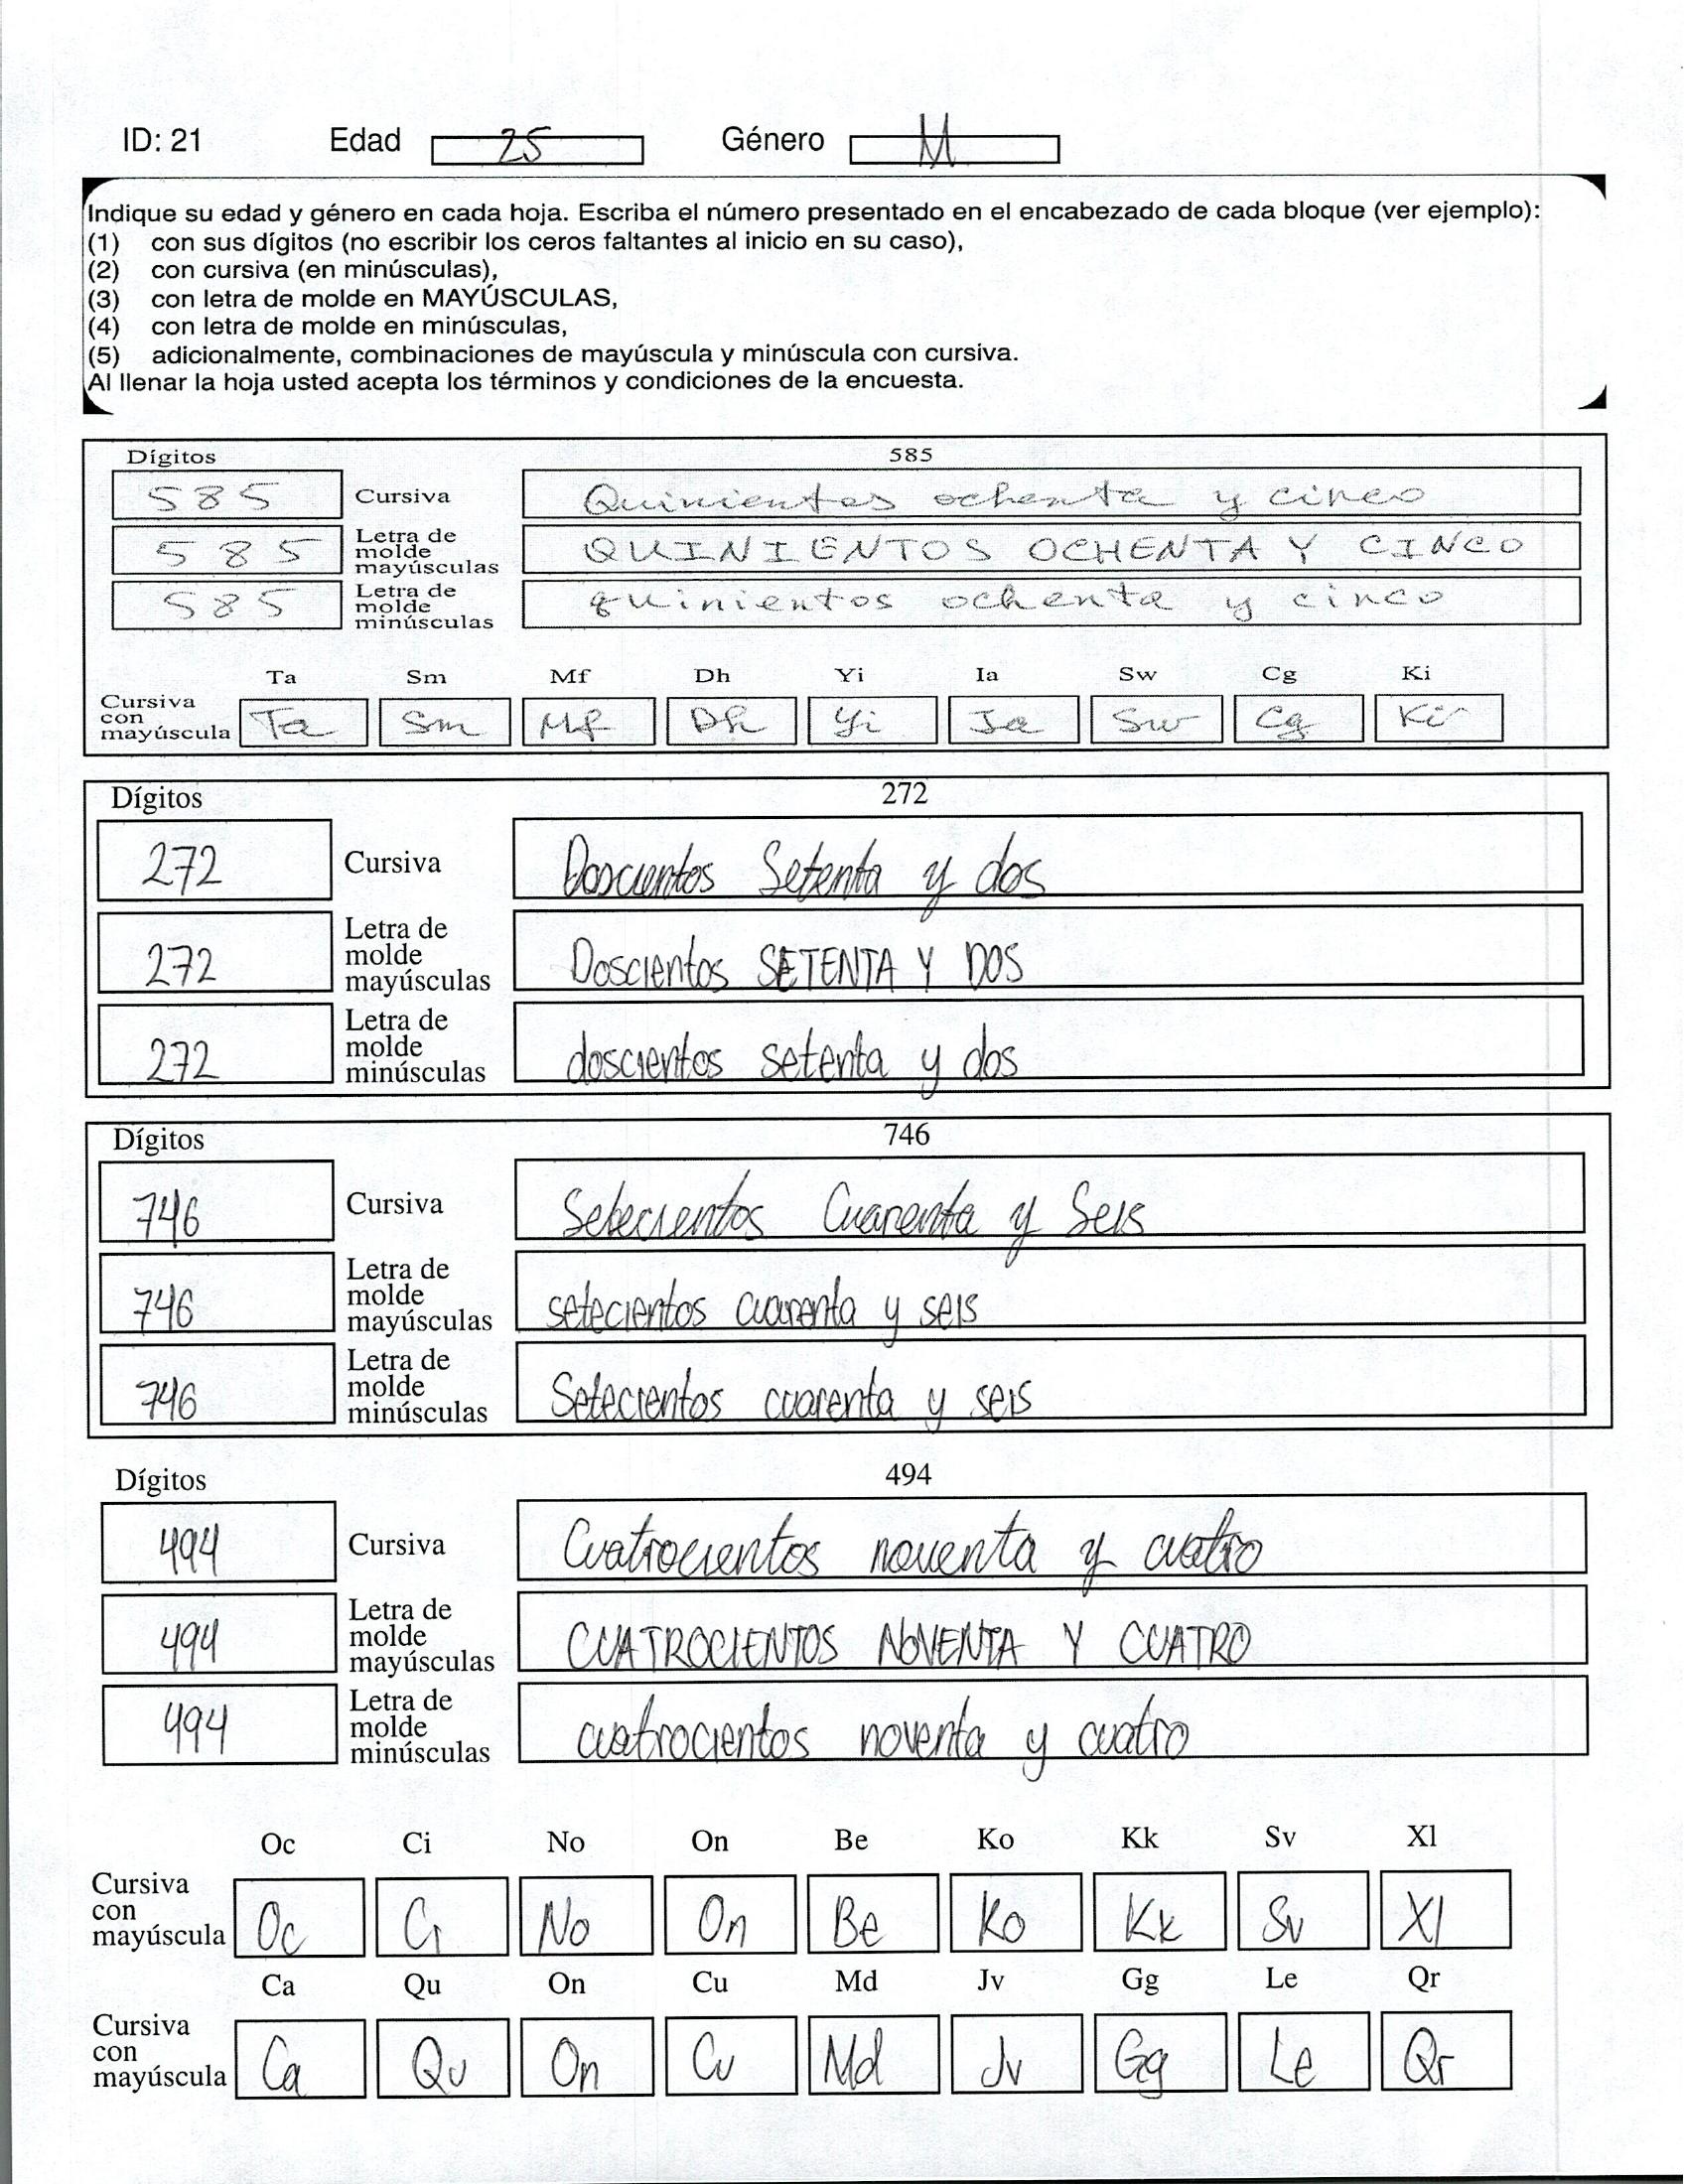 ID: 21 Edad 25 Género M
Indique su edad y género en cada hoja. Escriba el número presentado en el encabezado de cada bloque (ver ejemplo):
(1) con sus dígitos (no escribir los ceros faltantes al inicio en su caso),
(2) con cursiva (en minúsculas),
(3) con letra de molde en MAYÚSCULAS,
(4) con letra de molde en minúsculas,
(5) adicionalmente, combinaciones de mayúscula y minúscula con cursiva.
Al llenar la hoja usted acepta los términos y condiciones de la encuesta.
Dígitos 585
585 Cursiva Quinientos ochenta y cinco
585 Letra de molde mayúsculas QUINIENTOS OCHENTA Y CINCO
585 Letra de molde minúsculas quinientos ochenta y cinco
Ta Sm Mf Dh Yi Ia Sw Cg Ki
Cursiva con mayúscula Ta Sm Mf Dh Yi Ia Sw Cg Ki
Dígitos 272
272 Cursiva Doscientos Setenta y dos
272 Letra de molde mayúsculas Doscientos SETENTA Y DOS
272 Letra de molde minúsculas doscientos setenta y dos
Dígitos 746
746 Cursiva Setecientos Cuarenta y Seis
746 Letra de molde mayúsculas setecientos cuarenta y seis
746 Letra de molde minúsculas Setecientos cuarenta y seis
Dígitos 494
494 Cursiva Cuatrocientos noventa y cuatro
494 Letra de molde mayúsculas CUATROCIENTOS NOVENTA Y CUATRO
494 Letra de molde minúsculas cuatrocientos noventa y cuatro
Oc Ci No On Be Ko Kk Sv Xl
Cursiva con mayúscula Oc Ci No On Be Ko Kk Sv Xl
Ca Qu On Cu Md Jv Gg Le Qr
Cursiva con mayúscula Ca Qu On Cu Md Jv Gg Le Qr